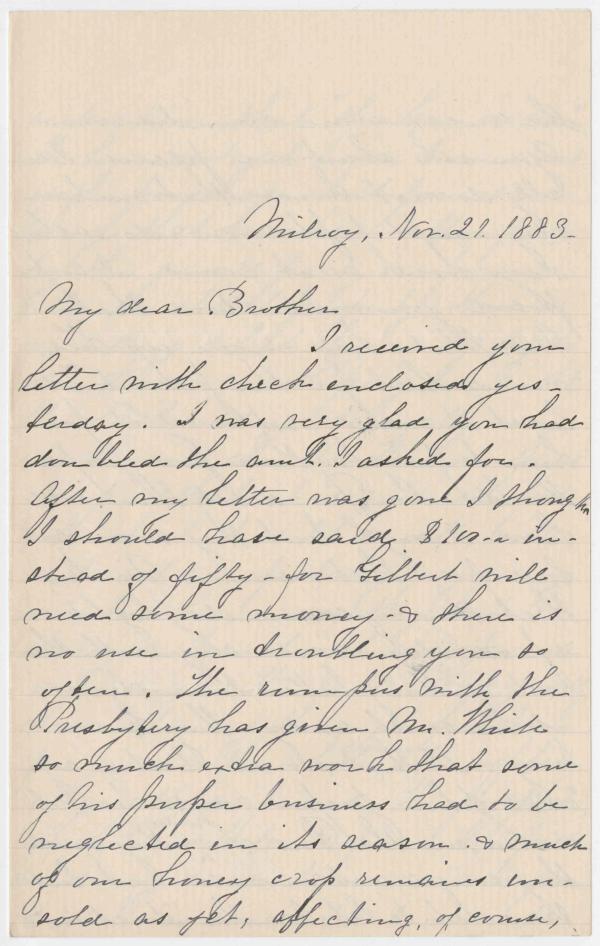 Milroy, Nov. 21. 1883-
My dear Brother
I received your
letter with check enclosed yes-
terday. I was very glad you had
doubled the amt. I asked for.
After my letter was gone I thought
I should have said $100-- in-
stead of fifty - for Gilbert will
need some money - & there is
no use in troubling you so
often. The rumpus with the
Presbytery has given Mr. White
so much extra work that some
of his proper business had to be
neglected in its season - & much
of our honey crop remains un-
sold as yet, affecting, of course,